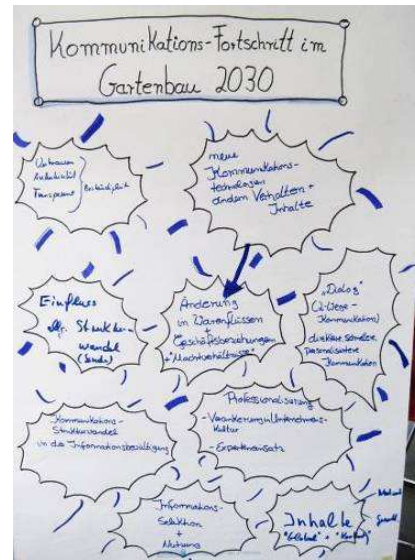 Kommunikations-Fortschritt im
Gartenbau 2030
Vertrauen
Authentizität
Transparenz
neue
Kommunikations-
technologien
ändern Verhalten +
Inhalte
Einfluss
allg. Struktur-
wandel
Änderung
in Warenflüssen
+
Geschäftsbeziehungen
+ "Machtverhältnisse"
"Dialog"
(2-Wege-
Kommunikation)
direktere schnellere
personalisiertere
Kommunikation
Kommunikations-
Strukturwandel
in der Informationsbewältigung
Professionalisierung
- Verankerung in Unternehmens-
kultur
- Experteneinsatz
Informations-
Selektion
+
Nutzung
Inhalte
"Global" +